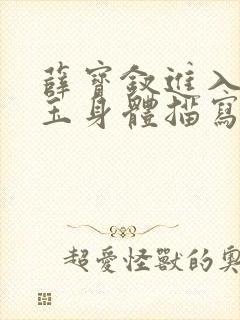 薛寶釵進入
玉身體描寫
超愛怪獸的奧